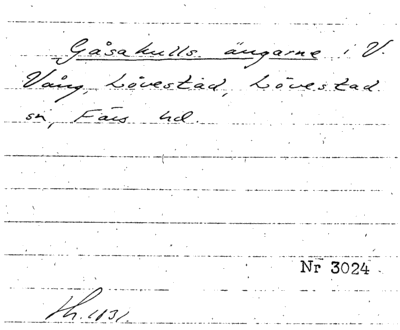 Gåsakulls ängarne i V.
Vång, Lövestad, Lövestad
sn, Färs hd.
Nr 3024
Th. 1831.